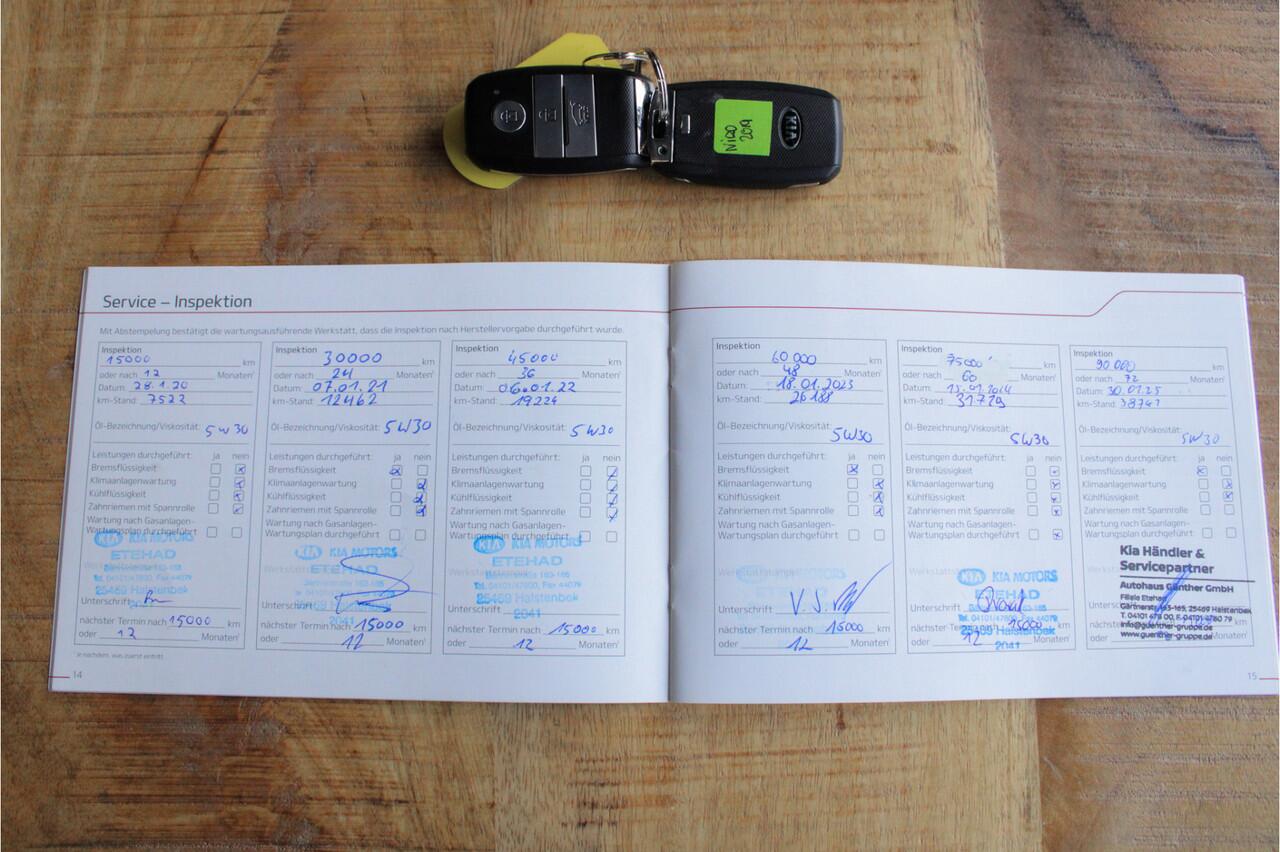 NIRO
2019
KIA
Service – Inspektion
Mit Abstempelung bestätigt die wartungsausführende Werkstatt, dass die Inspektion nach Herstellervorgabe durchgeführt wurde.
Inspektion
15000 km
oder nach 12 Monaten¹
Datum: 28.1.20
km-Stand: 7522
Öl-Bezeichnung/Viskosität: 5W30
Leistungen durchgeführt: ja nein
Bremsflüssigkeit
Klimaanlagenwartung
Kühlflüssigkeit
Zahnriemen mit Spannrolle
Wartung nach Gasanlagen-
Wartungsplan durchgeführt
KIA MOTORS
ETEHAD
Tel. 04101/47800, Fax 44079
25469 Halstenbek
Unterschrift
nächster Termin nach 15000 km
oder 12 Monaten¹
¹ Je nachdem, was zuerst eintritt.
14
Inspektion
30000 km
oder nach 24 Monaten¹
Datum: 07.01.21
km-Stand: 12462
Öl-Bezeichnung/Viskosität: 5W30
Leistungen durchgeführt: ja nein
Bremsflüssigkeit
Klimaanlagenwartung
Kühlflüssigkeit
Zahnriemen mit Spannrolle
Wartung nach Gasanlagen-
Wartungsplan durchgeführt
KIA MOTORS
ETEHAD
25469 Halstenbek
2041
Unterschrift
nächster Termin nach 15000 km
oder 12 Monaten¹
Inspektion
45000 km
oder nach 36 Monaten¹
Datum: 06.01.22
km-Stand: 19224
Öl-Bezeichnung/Viskosität: 5W30
Leistungen durchgeführt: ja nein
Bremsflüssigkeit
Klimaanlagenwartung
Kühlflüssigkeit
Zahnriemen mit Spannrolle
Wartung nach Gasanlagen-
Wartungsplan durchgeführt
KIA MOTORS
ETEHAD
Tel. 04101/47800, Fax 44079
25469 Halstenbek
2041
Unterschrift
nächster Termin nach 15000 km
oder 12 Monaten¹
Inspektion
60 000 km
oder nach 48 Monaten¹
Datum: 18.01.2023
km-Stand: 26188
Öl-Bezeichnung/Viskosität: 5W30
Leistungen durchgeführt: ja nein
Bremsflüssigkeit
Klimaanlagenwartung
Kühlflüssigkeit
Zahnriemen mit Spannrolle
Wartung nach Gasanlagen-
Wartungsplan durchgeführt
Unterschrift
nächster Termin nach 15000 km
oder 12 Monaten¹
Inspektion
75000 km
oder nach 60 Monaten¹
Datum:
km-Stand: 31729
Öl-Bezeichnung/Viskosität: 5W30
Leistungen durchgeführt: ja nein
Bremsflüssigkeit
Klimaanlagenwartung
Kühlflüssigkeit
Zahnriemen mit Spannrolle
Wartung nach Gasanlagen-
Wartungsplan durchgeführt
KIA MOTORS
ETEHAD
25469 Halstenbek
2041
Unterschrift
nächster Termin nach 15000 km
oder 12 Monaten¹
Inspektion
90 000 km
oder nach 72 Monaten¹
Datum: 30.01.25
km-Stand: 38741
Öl-Bezeichnung/Viskosität: 5W30
Leistungen durchgeführt: ja nein
Bremsflüssigkeit
Klimaanlagenwartung
Kühlflüssigkeit
Zahnriemen mit Spannrolle
Wartung nach Gasanlagen-
Wartungsplan durchgeführt
Kia Händler &
Servicepartner
Autohaus Günther GmbH
Filiale Etehad
Gärtnerstr. 163-165, 25469 Halstenbek
info@guenther-gruppe.de
www.guenther-gruppe.de
nächster Termin nach km
oder Monaten¹
15